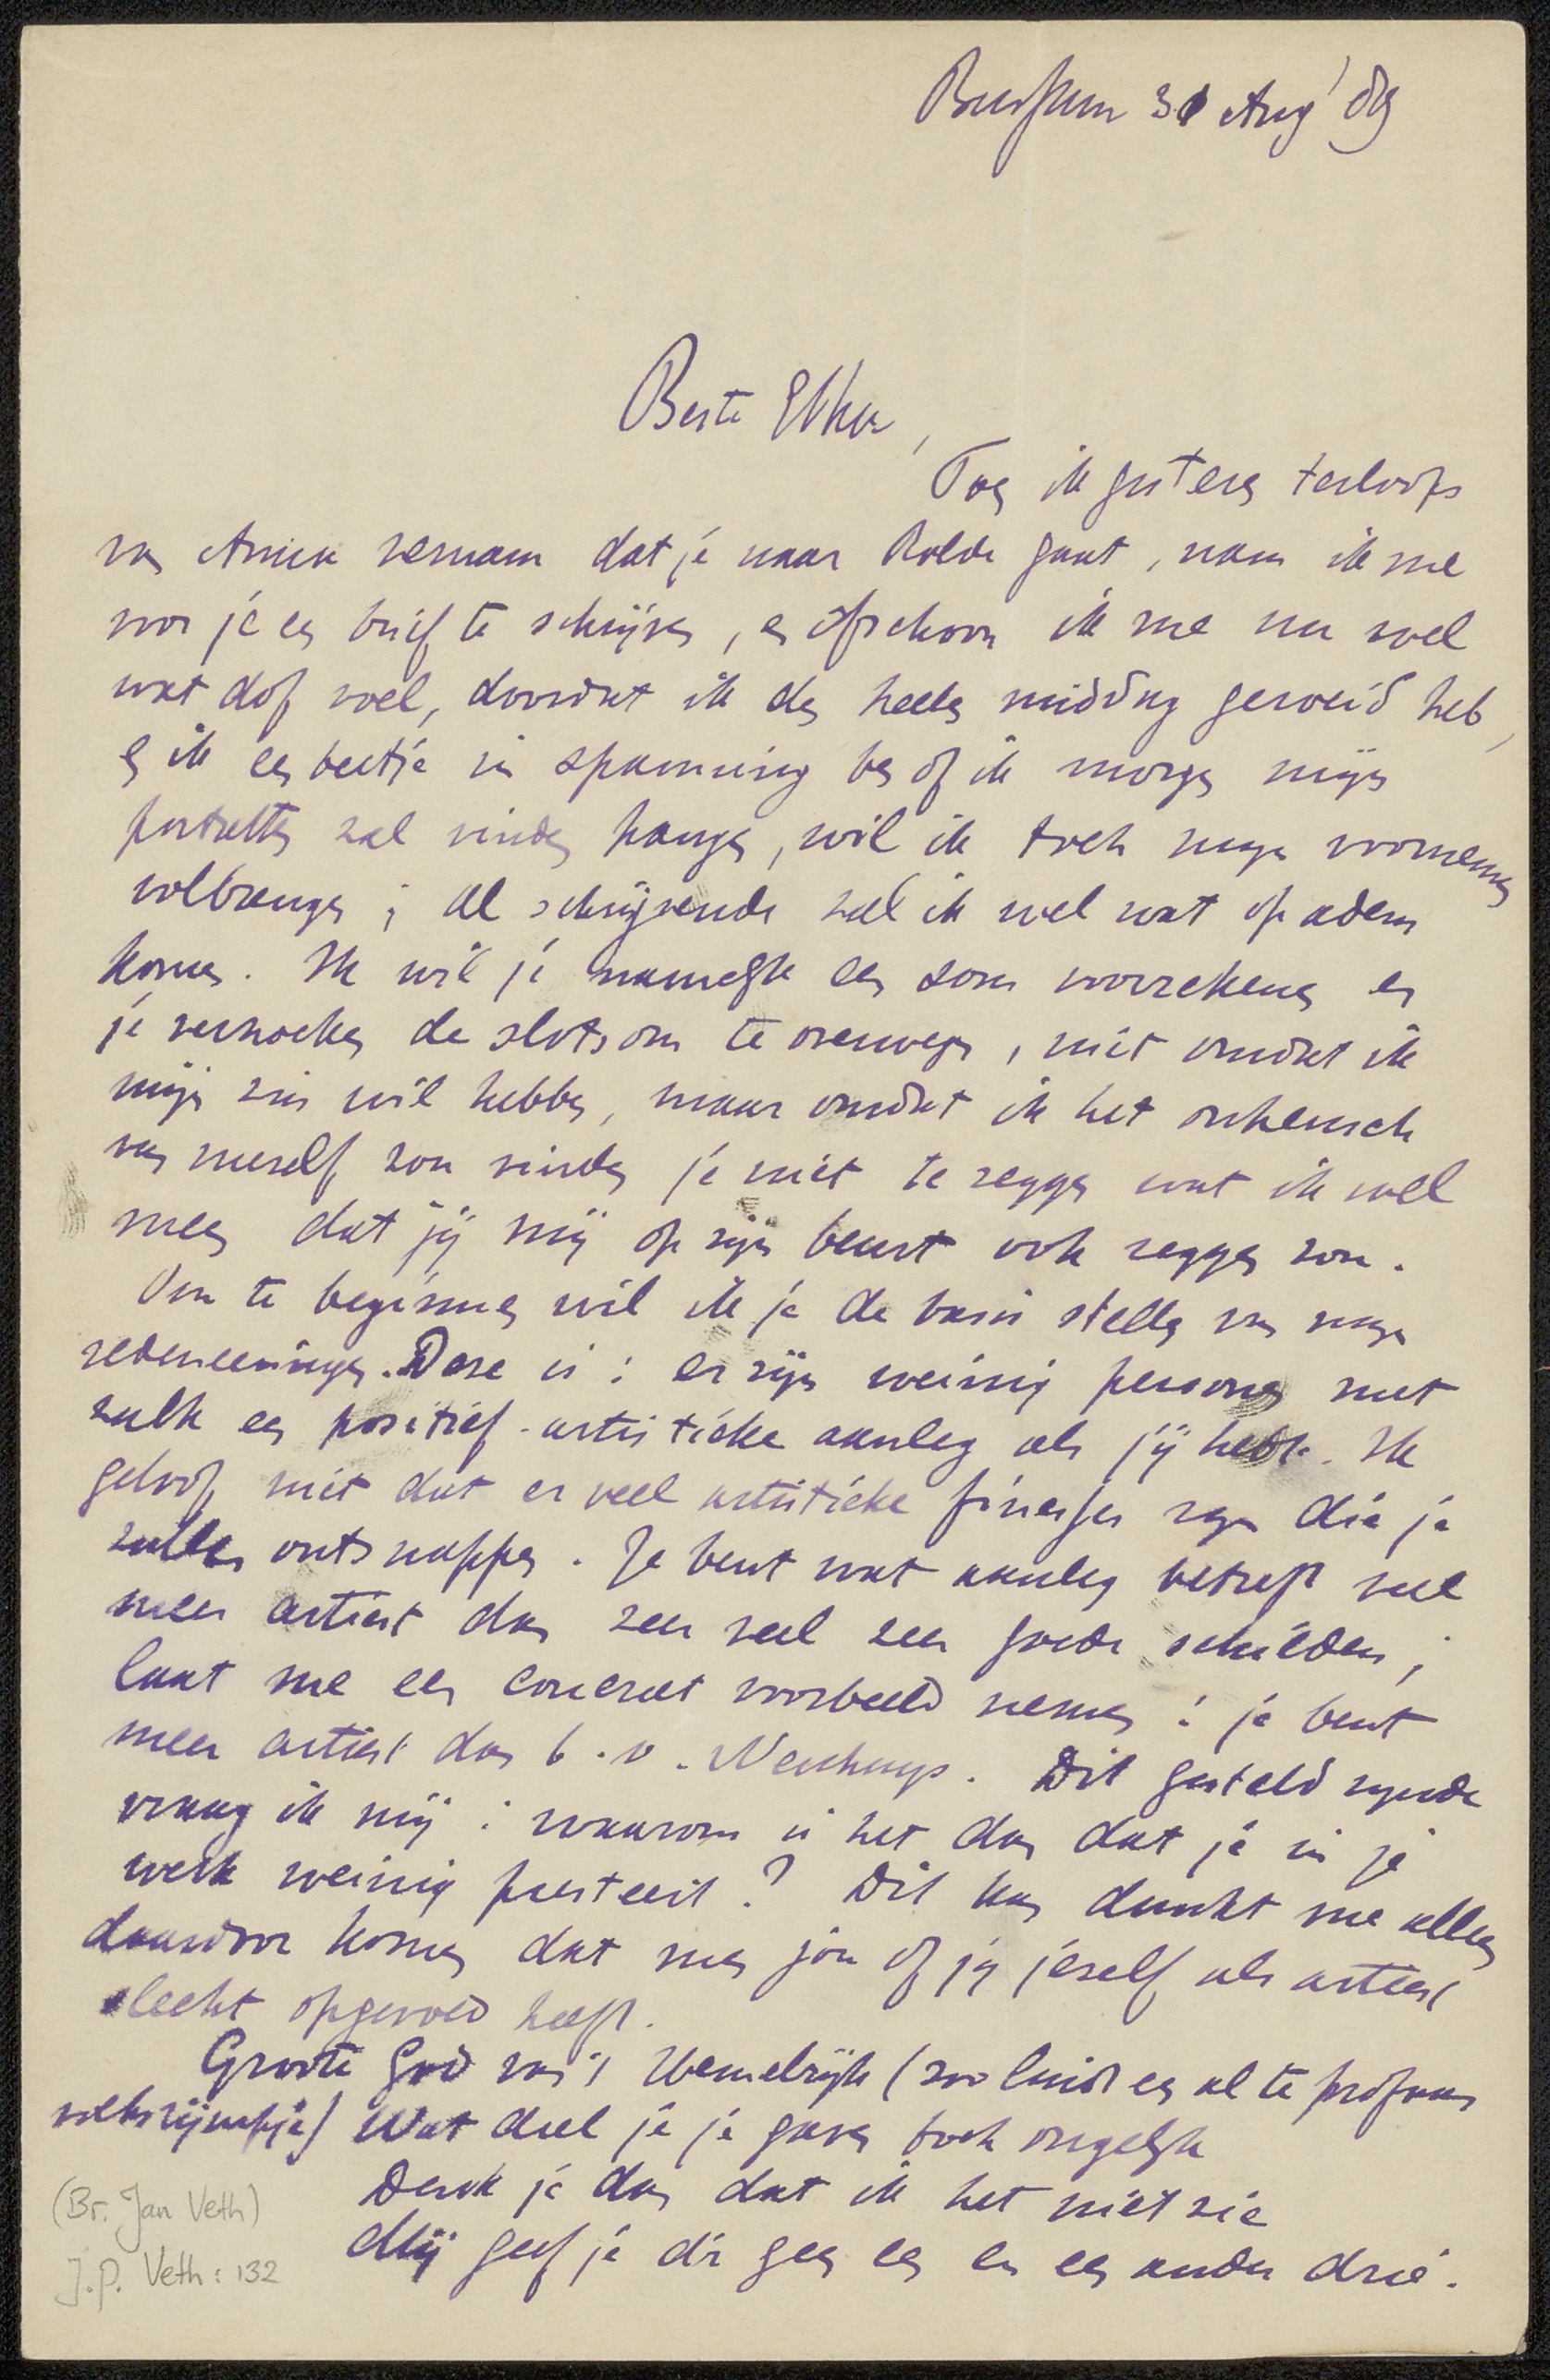 Bussum 31 Aug '89
Beste Ekker,
Toen ik gisteren terloops
van Anna vernam dat je naar Rolde gaat, nam ik me
voor je een brief te schrijven, en ofschoon ik me nu wel
wat dof voel, doordat ik den heelen middag geroeid heb,
en ik een beetje in spanning ben of ik morgen mijn
portretten zal vinden hangen, wil ik toch mijn voornemen
volbrengen; al schrijvende zal ik wel wat op adem
komen. Ik wil je namelijk een som voorrekenen en
je verzoeken de slotsom te overwegen, niet omdat ik
mijn zin wil hebben, maar omdat ik het onheusch
van mezelf zou vinden je niet te zeggen wat ik wel
meen dat jij mij op zijn beurt ook zeggen zou.
Om te beginnen wil ik je de basis stellen van mijn
redeneeringen. Deze is: er zijn weinig personen met
zulk een positief-artistieke aanleg als jij hebt. Ik
geloof niet dat er veel artistieke finesses zijn die je
zullen ontsnappen. Je bent wat aanleg betreft veel
meer artiest dan zeer veel zeer goede schilders;
laat me een concreet voorbeeld nemen: je bent
meer artiest dan b.v. Neuhuys. Dit gesteld zijnde
vraag ik mij: waarom is het dan dat je in je
werk weinig presteert? Dit kan dunkt me alleen
daardoor komen dat men jou of jij jezelf als artiest
slecht opgevoed heeft.
Groote God van 't Hemelrijk (zoo luidt een al te profaan
volksrijmpje) Wat deel je je gaven toch ongelijk
Denk je dan dat ik het niet zie
Mij geef je d'r geen een en een ander drie.
(Br. Jan Veth)
J.P. Veth: 132